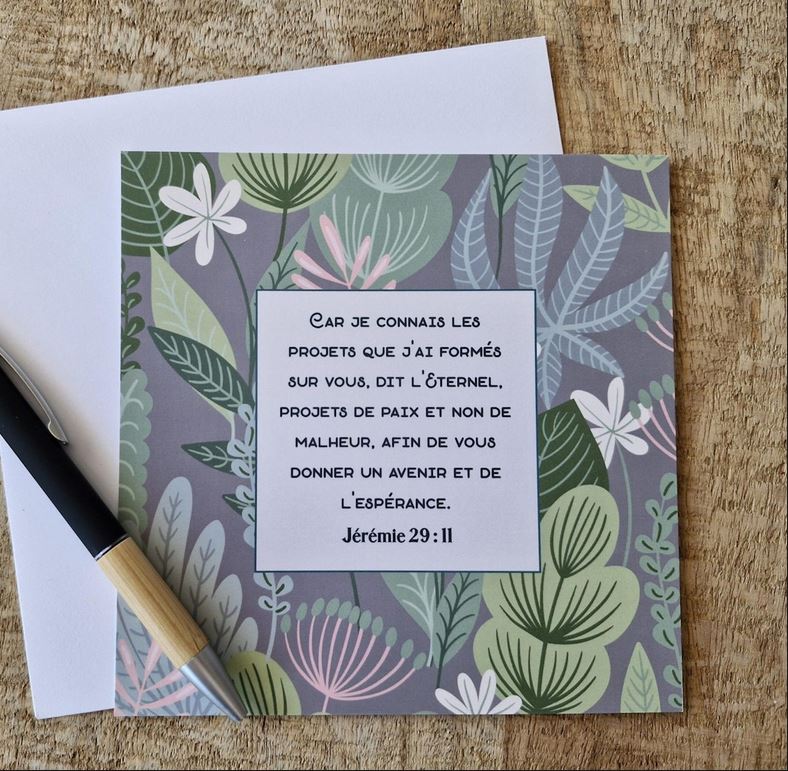 Car je connais les
projets que j'ai formés
sur vous, dit l'Eternel,
projets de paix et non de
malheur, afin de vous
donner un avenir et de
l'espérance.
Jérémie 29 : 11